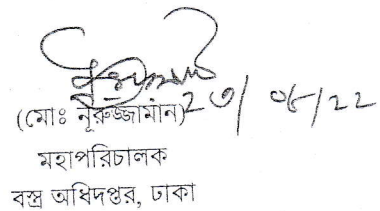 (মোঃ নূরুজ্জামান)
মহাপরিচালক
বস্ত্র অধিদপ্তর, ঢাকা